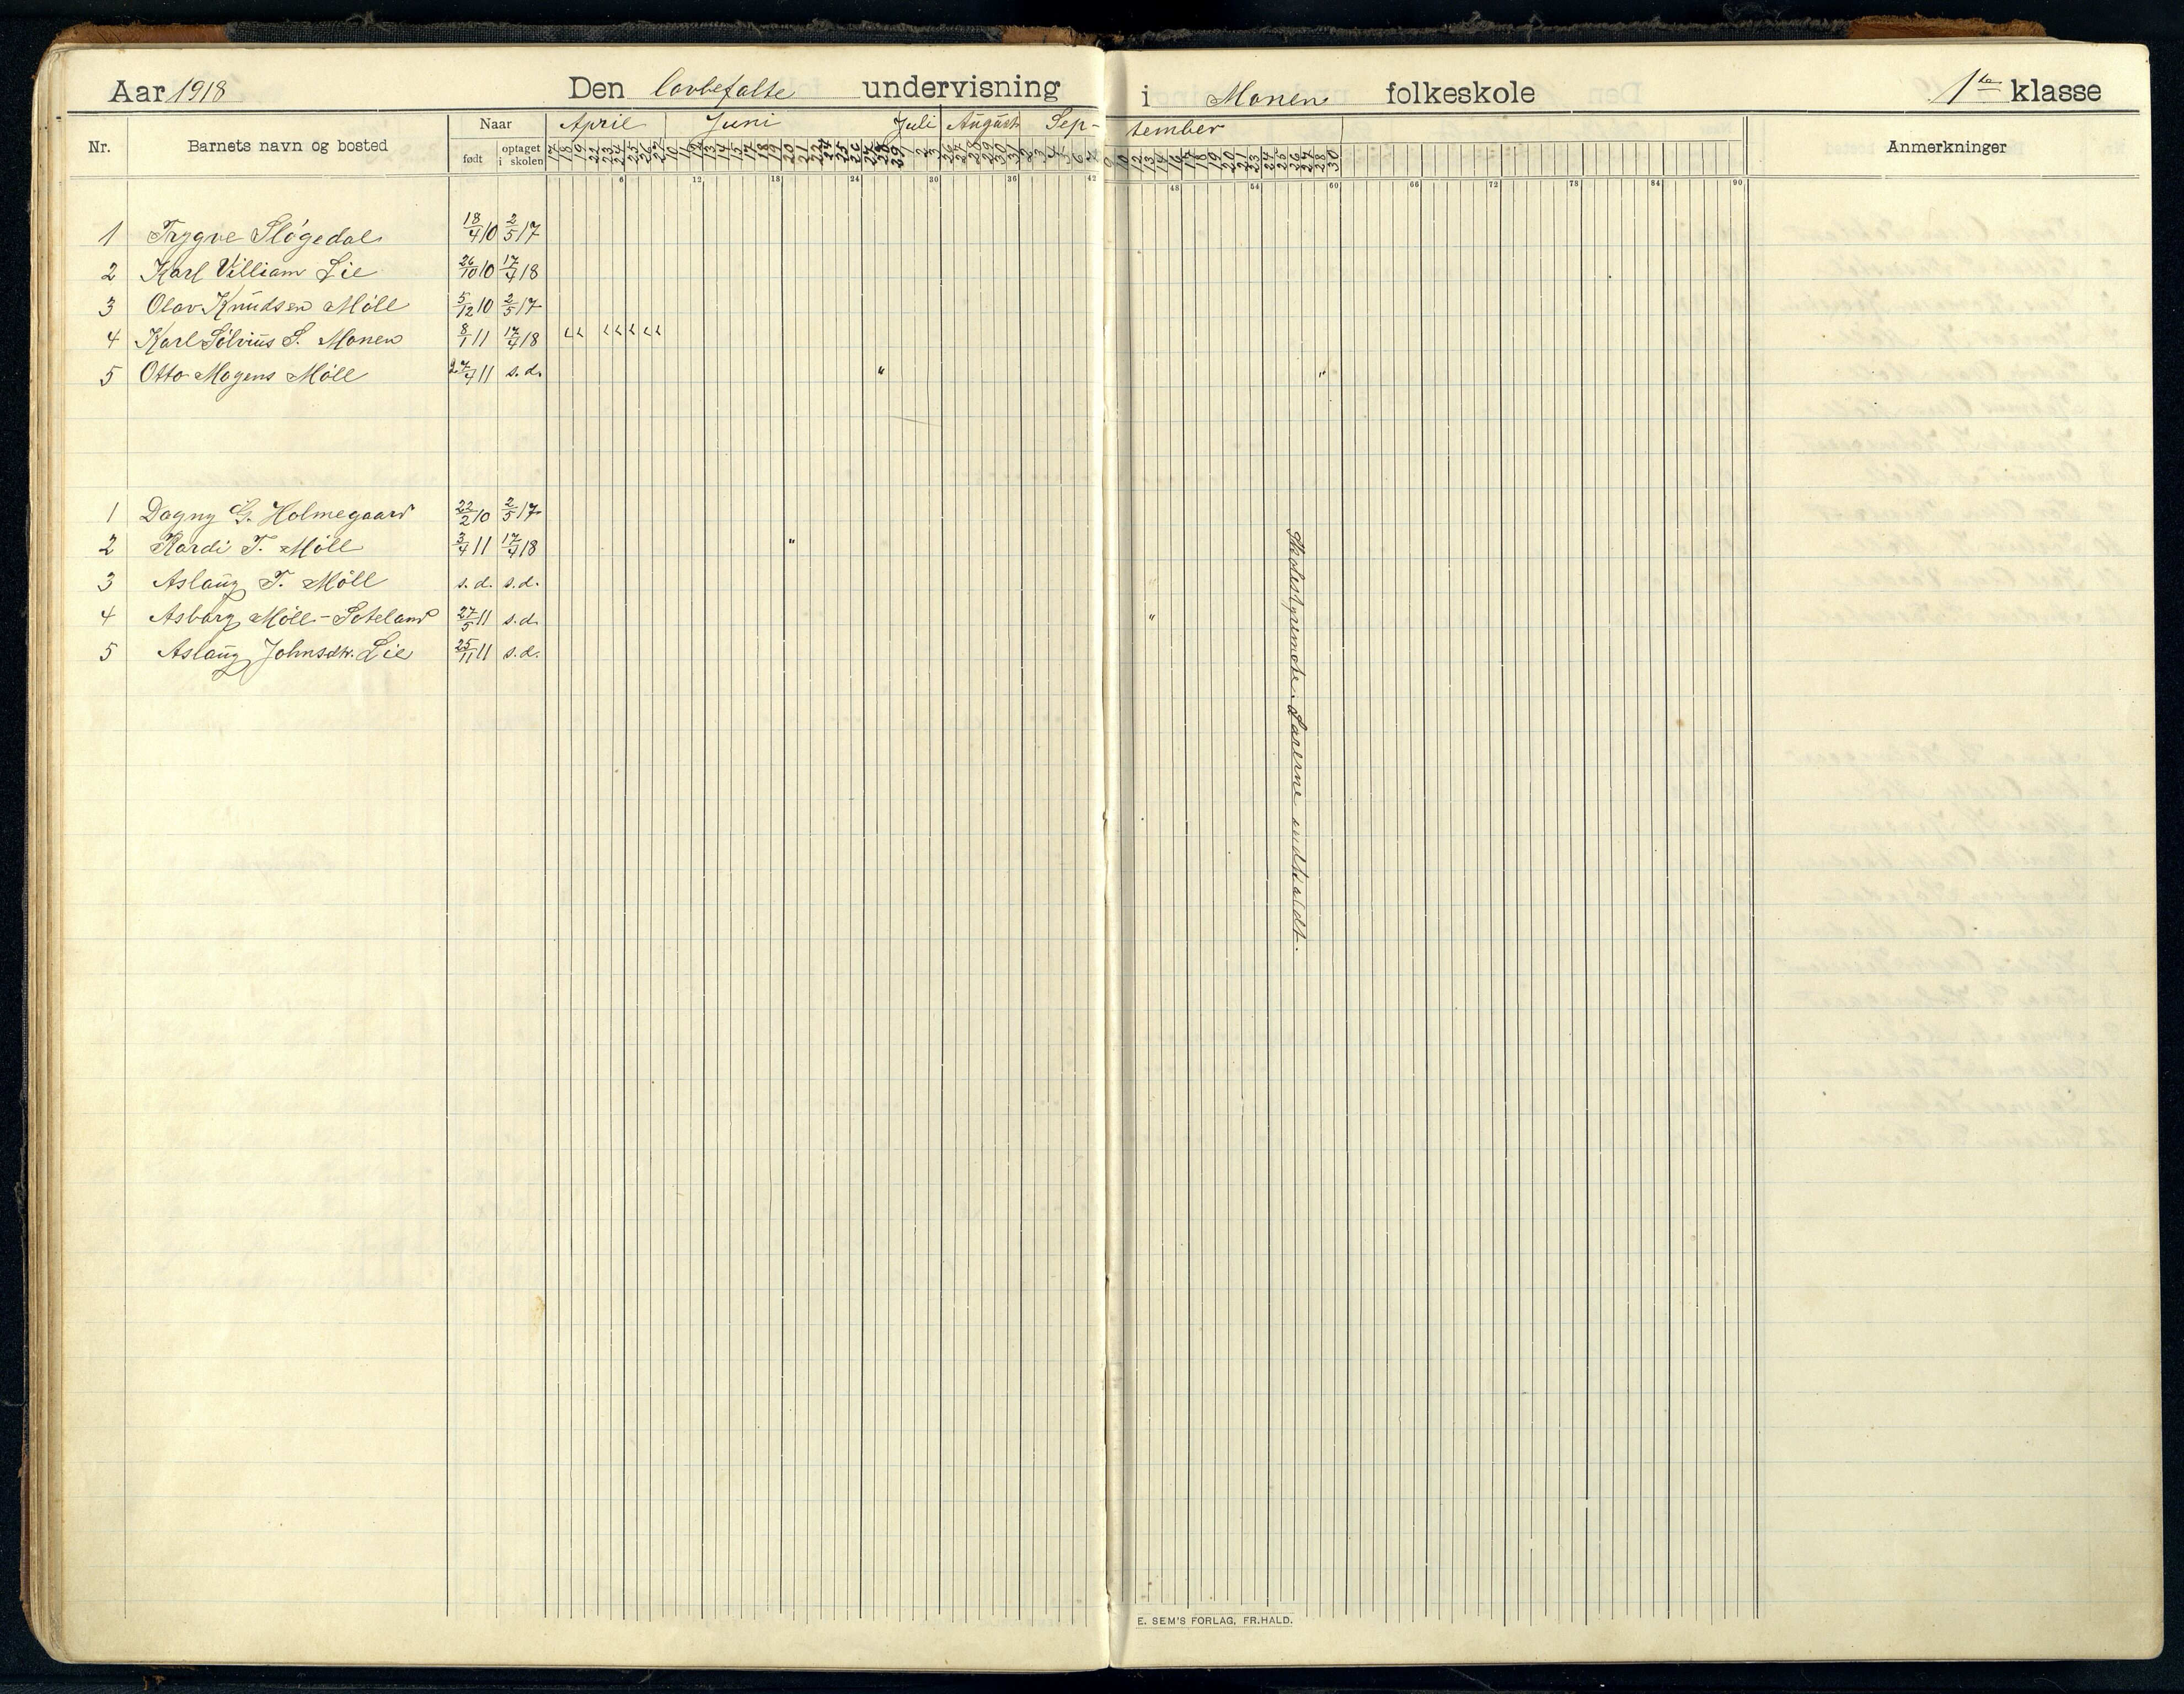 Aar 1918 Den lovbefalte undervisning i Monen folkeskole 1ste klasse
Nr. Barnets navn og bosted Naar født optaget i skolen April Juni Juli August Sep- tember Anmerkninger
17 18 19 22 23 24 25 26 27 10 11 12 13 14 15 17 18 19 20 21 22 24 25 26 27 28 29 2 3 26 27 28 29 30 31 2 3 4 5 6 7 9 10 12 13 14 16 17 18 19 20 21 23 24 25 26 27 28 30
6 12 18 24 30 36 42 48 54 60 66 72 78 84 90
1 Trygve Sløgedal 18/4 10 2/5 17
2 Karl Villiam Lie 26/10 10 17/4 18
3 Olav Knudsen Møll 5/12 10 2/5 17
4 Karl Sølvius S. Monen 8/1 11 17/4 18
5 Otto Mogens Møll 27/4 11 s. d. " "
1 Dagny G. Holmegaard 22/2 10 2/5 17
2 Kardi T. Møll 3/4 11 17/4 18 "
3 Aslaug T. Møll s. d. s. d.
4 Asborg Møll-Soteland 27/5 11 s. d. "
5 Aslaug Johnsdtr. Lie 25/11 11 s. d.
Skolestyremøte. Lærerne indkaldt.
E. SEM'S FORLAG, FR.HALD.